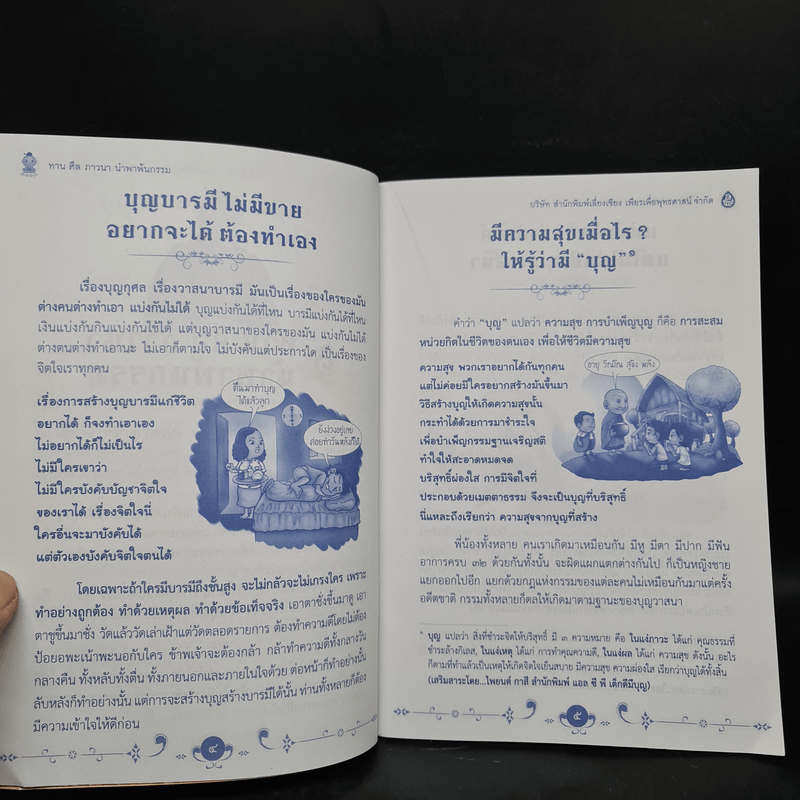 ทาน ศีล ภาวนา นำพาพ้นกรรม
บุญบารมี ไม่มีขาย
อยากจะได้ ต้องทำเอง
เรื่องบุญกุศล เรื่องวาสนาบารมี มันเป็นเรื่องของใครของมัน
ต่างคนต่างทำเอา แบ่งกันไม่ได้ บุญแบ่งกันได้ที่ไหน บารมีแบ่งกันได้ที่ไหน
เงินแบ่งกันกินแบ่งกันใช้ได้ แต่บุญวาสนาของใครของมัน แบ่งกันไม่ได้
ต่างคนต่างทำเอานะ ไม่เอาก็ตามใจ ไม่บังคับแต่ประการใด เป็นเรื่องของ
จิตใจเราทุกคน
เรื่องการสร้างบุญบารมีแก่ชีวิต
อยากได้ ก็จงทำเอาเอง
ไม่อยากได้ก็ไม่เป็นไร
ไม่มีใครเขาว่า
ไม่มีใครบังคับบัญชาจิตใจ
ของเราได้ เรื่องจิตใจนี่
ใครอื่นจะมาบังคับได้
แต่ตัวเองบังคับจิตใจตนได้
ตื่นมาทำบุญ
ได้แล้วลูก
ยังง่วงอยู่เลย
ค่อยทำวันหลังก็ได้
โดยเฉพาะถ้าใครมีบารมีถึงชั้นสูง จะไม่กลัวจะไม่เกรงใคร เพราะ
ทำอย่างถูกต้อง ทำด้วยเหตุผล ทำด้วยข้อเท็จจริง เอาตาชั่งขึ้นมาดู เอา
ตาชูขึ้นมาชั่ง วัดแล้ววัดเล่าเฝ้าแต่วัดตลอดรายการ ต้องทำความดีโดยไม่ต้อง
ป้อยอพะเน้าพะนอกับใคร ข้าพเจ้าจะต้องกล้า กล้าทำความดีทั้งกลางวัน
กลางคืน ทั้งหลับทั้งตื่น ทั้งภายนอกและภายในใจด้วย ต่อหน้าก็ทำอย่างนั้น
ลับหลังก็ทำอย่างนั้น แต่การจะสร้างบุญสร้างบารมีได้นั้น ท่านทั้งหลายก็ต้อง
มีความเข้าใจให้ดีก่อน
๔
บริษัท สำนักพิมพ์เลี่ยงเชียง เพียรเพื่อพุทธศาสน์ จำกัด
มีความสุขเมื่อไร ?
ให้รู้ว่ามี “บุญ”๑
คำว่า “บุญ” แปลว่า ความสุข การบำเพ็ญบุญ ก็คือ การสะสม
หน่วยกิตในชีวิตของตนเอง เพื่อให้ชีวิตมีความสุข
ความสุข พวกเราอยากได้กันทุกคน
แต่ไม่ค่อยมีใครอยากสร้างมันขึ้นมา
วิธีสร้างบุญให้เกิดความสุขนั้น
กระทำได้ด้วยการมาชำระใจ
เพื่อบำเพ็ญกรรมฐานเจริญสติ
ทำใจให้สะอาดหมดจด
บริสุทธิ์ผ่องใส การมีจิตใจที่
ประกอบด้วยเมตตาธรรม จึงจะเป็นบุญที่บริสุทธิ์
นี่แหละถึงเรียกว่า ความสุขจากบุญที่สร้าง
อายุ วัณโณ สุขัง พลัง
พี่น้องทั้งหลาย คนเราเกิดมาเหมือนกัน มีหู มีตา มีปาก มีฟัน
อาการครบ ๓๒ ด้วยกันทั้งนั้น จะผิดแผกแตกต่างกันไป ก็เป็นหญิงชาย
แยกออกไปอีก แยกด้วยกฎแห่งกรรมของแต่ละคนไม่เหมือนกันมาแต่ครั้ง
อดีตชาติ กรรมทั้งหลายก็ดลให้เกิดมาตามฐานะของบุญวาสนา
๑ บุญ แปลว่า สิ่งที่ชำระจิตให้บริสุทธิ์ มี ๓ ความหมาย คือ ในแง่ภาวะ ได้แก่ คุณธรรมที่
ชำระล้างกิเลส, ในแง่เหตุ ได้แก่ การทำคุณความดี, ในแง่ผล ได้แก่ ความสุข ดังนั้น อะไร
ก็ตามที่ทำแล้วเป็นเหตุให้เกิดจิตใจเย็นสบาย มีความสุข ความผ่องใส เรียกว่าบุญได้ทั้งสิ้น
(เสริมสาระโดย...ไพยนต์ กาสี สำนักพิมพ์ แอล ซี พี เด็กดีมีบุญ)
๕